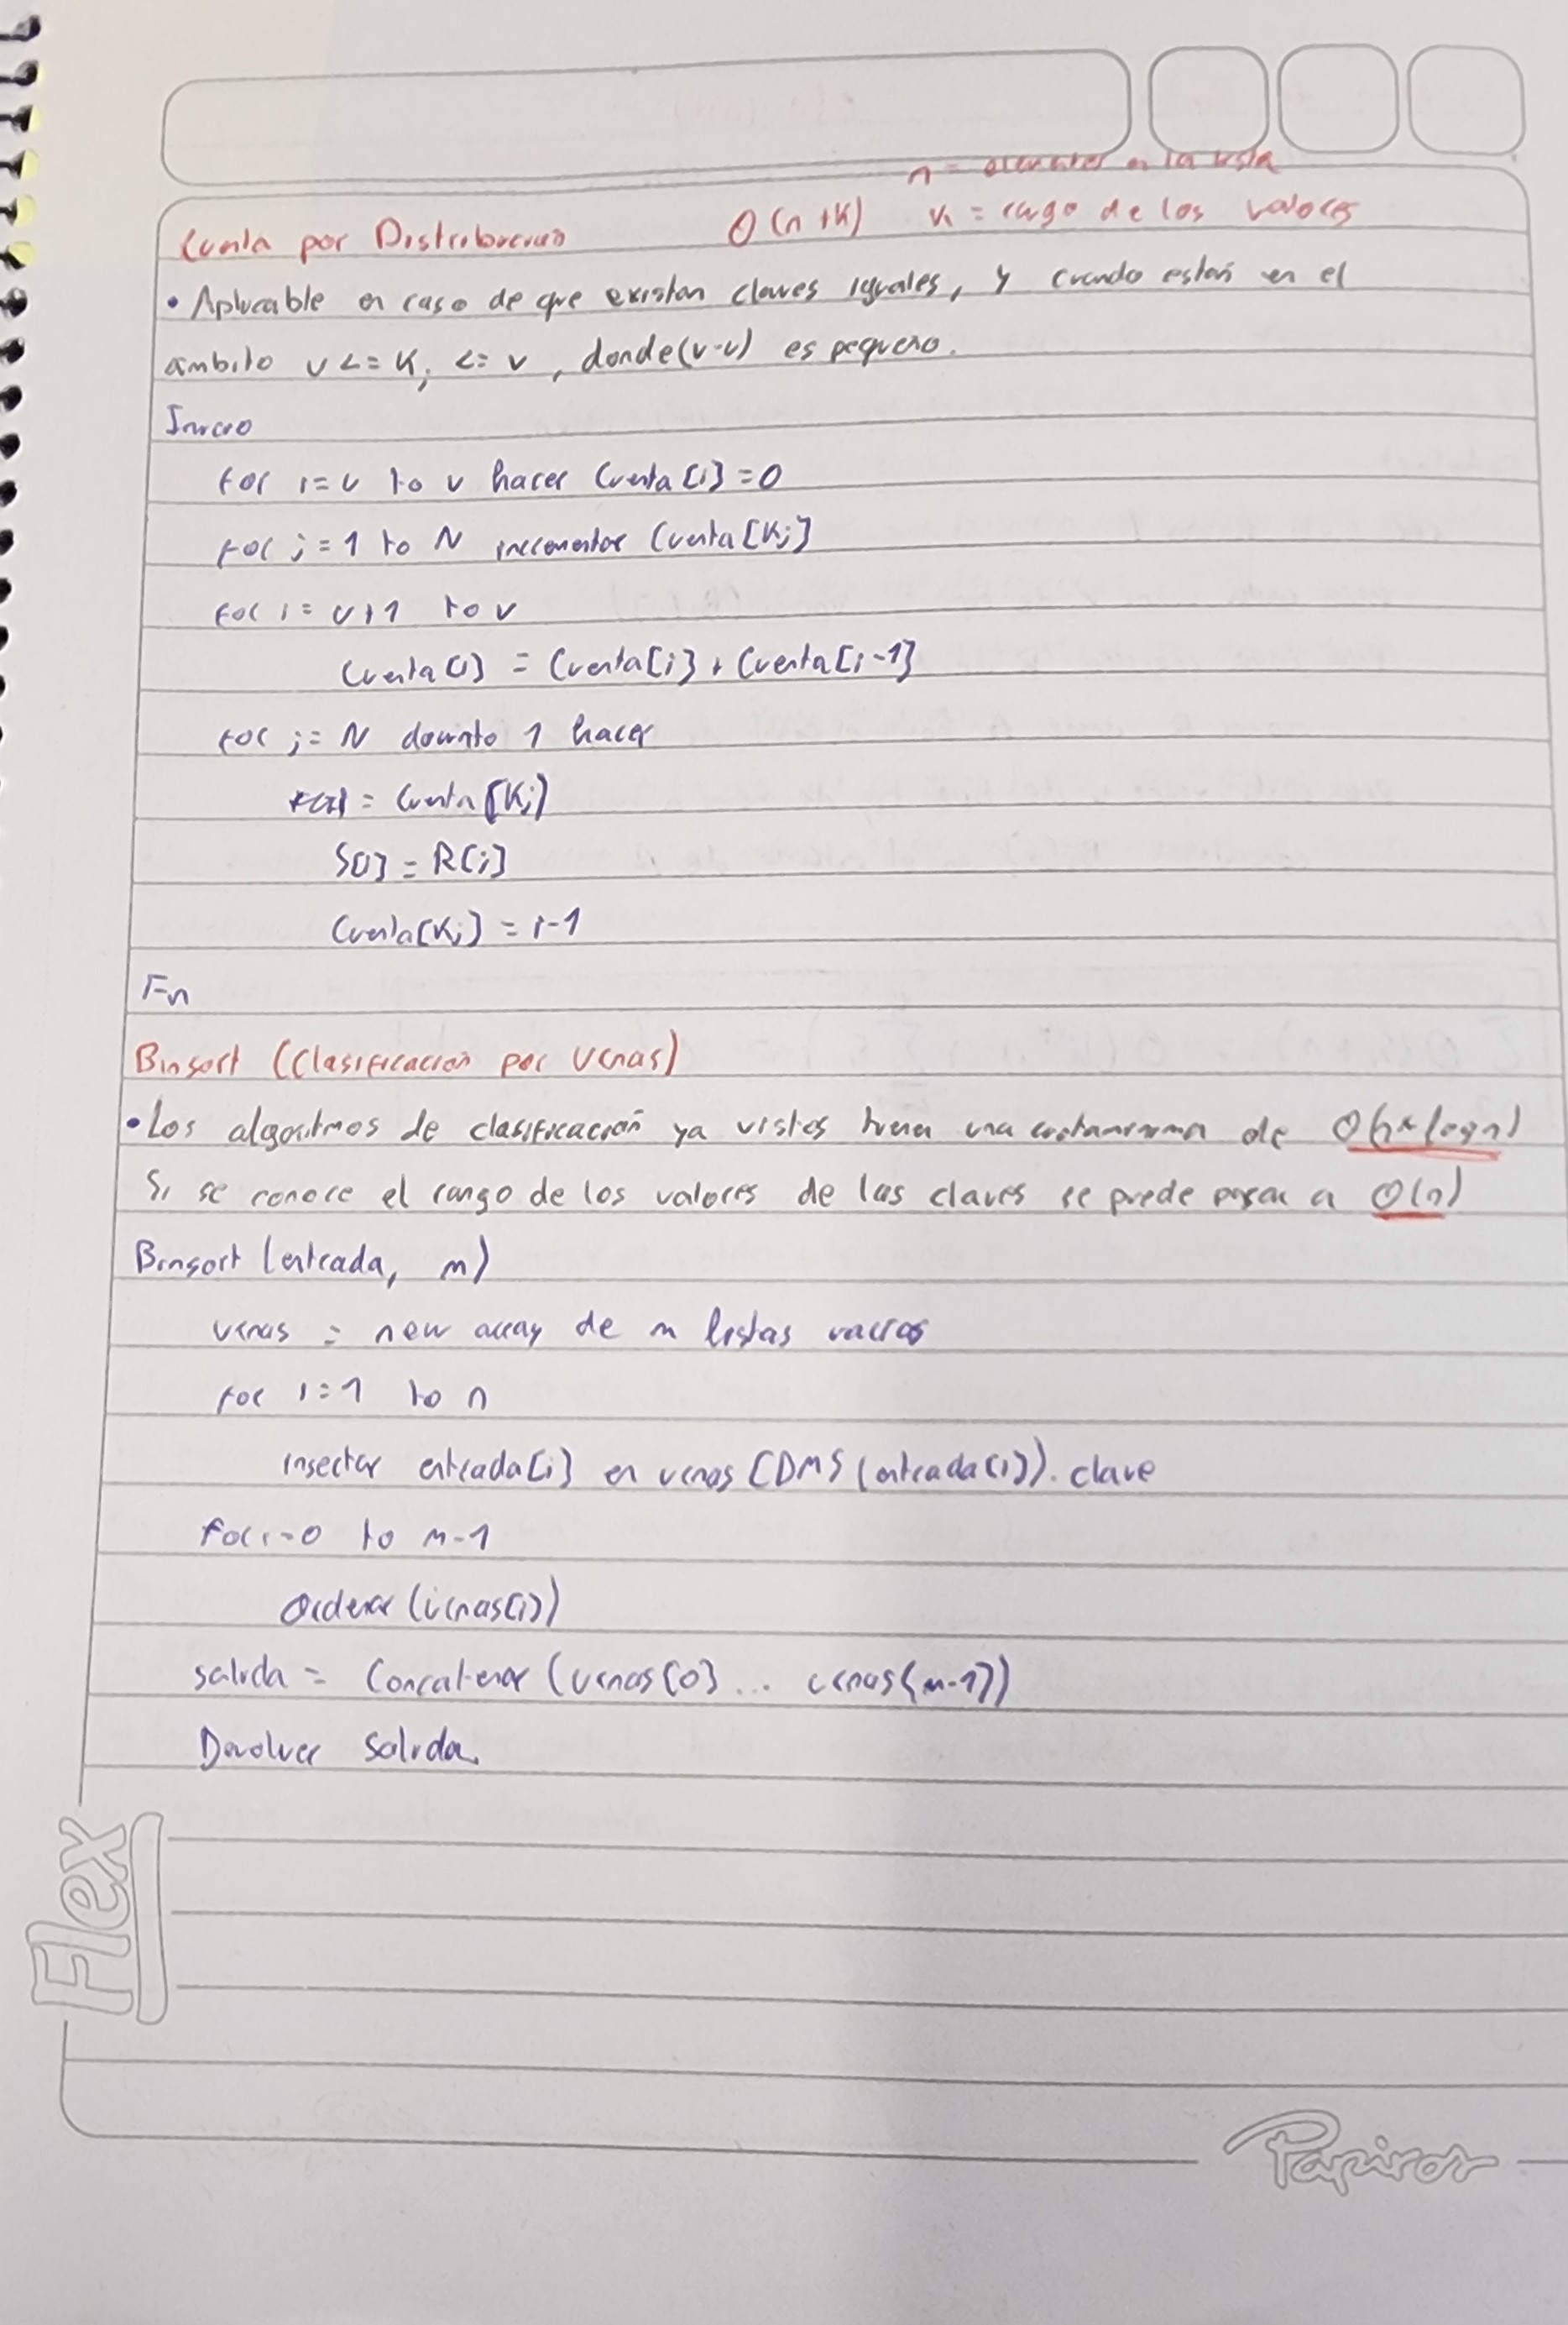 n = elementos en la lista
Cuenta por Distribucion O(n+K) K = rango de los valores
• Aplicable en caso de que existan claves iguales, y cuando están en el
ambito u <= Kj <= v, donde (v-u) es pequeño.
Inicio
for i=u to v hacer Cuenta[i]=0
for j=1 to N incrementar Cuenta[Kj]
for i=u+1 to v
Cuenta[i] = Cuenta[i] + Cuenta[i-1]
for j=N downto 1 hacer
= Cuenta[Kj]
S[i] = R[j]
Cuenta[Kj] = i-1
Fin
Binsort (Clasificacion por Urnas)
• Los algoritmos de clasificación ya vistos tienen una cota minima de O(n*logn)
Si se conoce el rango de los valores de las claves se puede pasar a O(n)
Binsort (entrada, m)
urnas = new array de m listas vacias
for i=1 to n
insertar entrada[i] en urnas [DMS(entrada[i]).clave
for i=0 to m-1
Ordenar (urnas[i])
salida = Concatenar (urnas[0] ... urnas[m-1])
Devolver salida.
Flex
Papiros